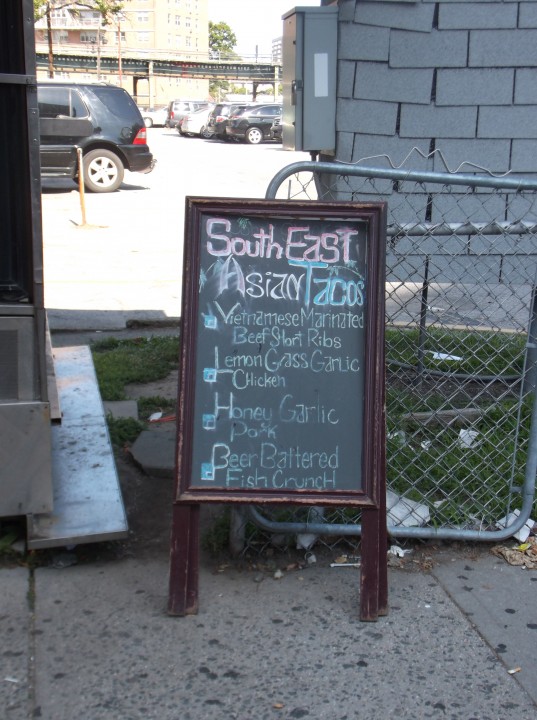 South East
Asian Tacos
Vietnamese Marinated
Beef Short Ribs
Lemon Grass Garlic
Chicken
Honey Garlic
Pork
Beer Battered
Fish Crunch